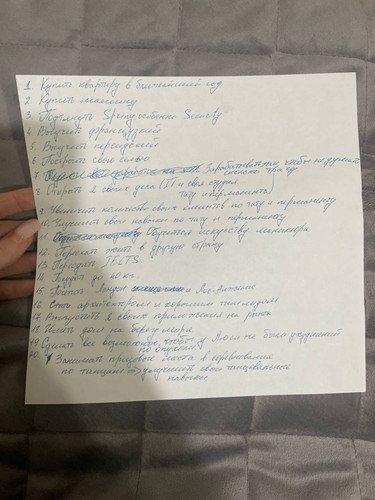 1. Купить квартиру в ближайший год
2. Купить машину
3. Подтянуть Spring, особенно Security
4. Выучить французский
5. Выучить персидский
6. Построить свою семью
7. Зарабатывать, чтобы не думать
сколько трачу
8. Открыть 2 своих дела (IT и своя студия
тату и перманента)
9. Увеличить количество своих клиентов по тату и перманенту
10. Улучшить свои навыки по тату и перманенту
11. Обучиться искусству маникюра
12. Переехать жить в другую страну
13. Пересдать IELTS.
14. Похудеть до 40 кг
15. Посетить Лондон и Лос-Анджелес
16. Стать архитектором и хорошим тимлидом
17. Выпустить 2 своих приложения на рынок
18. Иметь дом на берегу моря
19. Сделать все возможное, чтобы у Люси не было ухудшений
по опухоли
20. Занимать призовые места в соревнованиях
по танцам => улучшить свои танцевальные
навыки